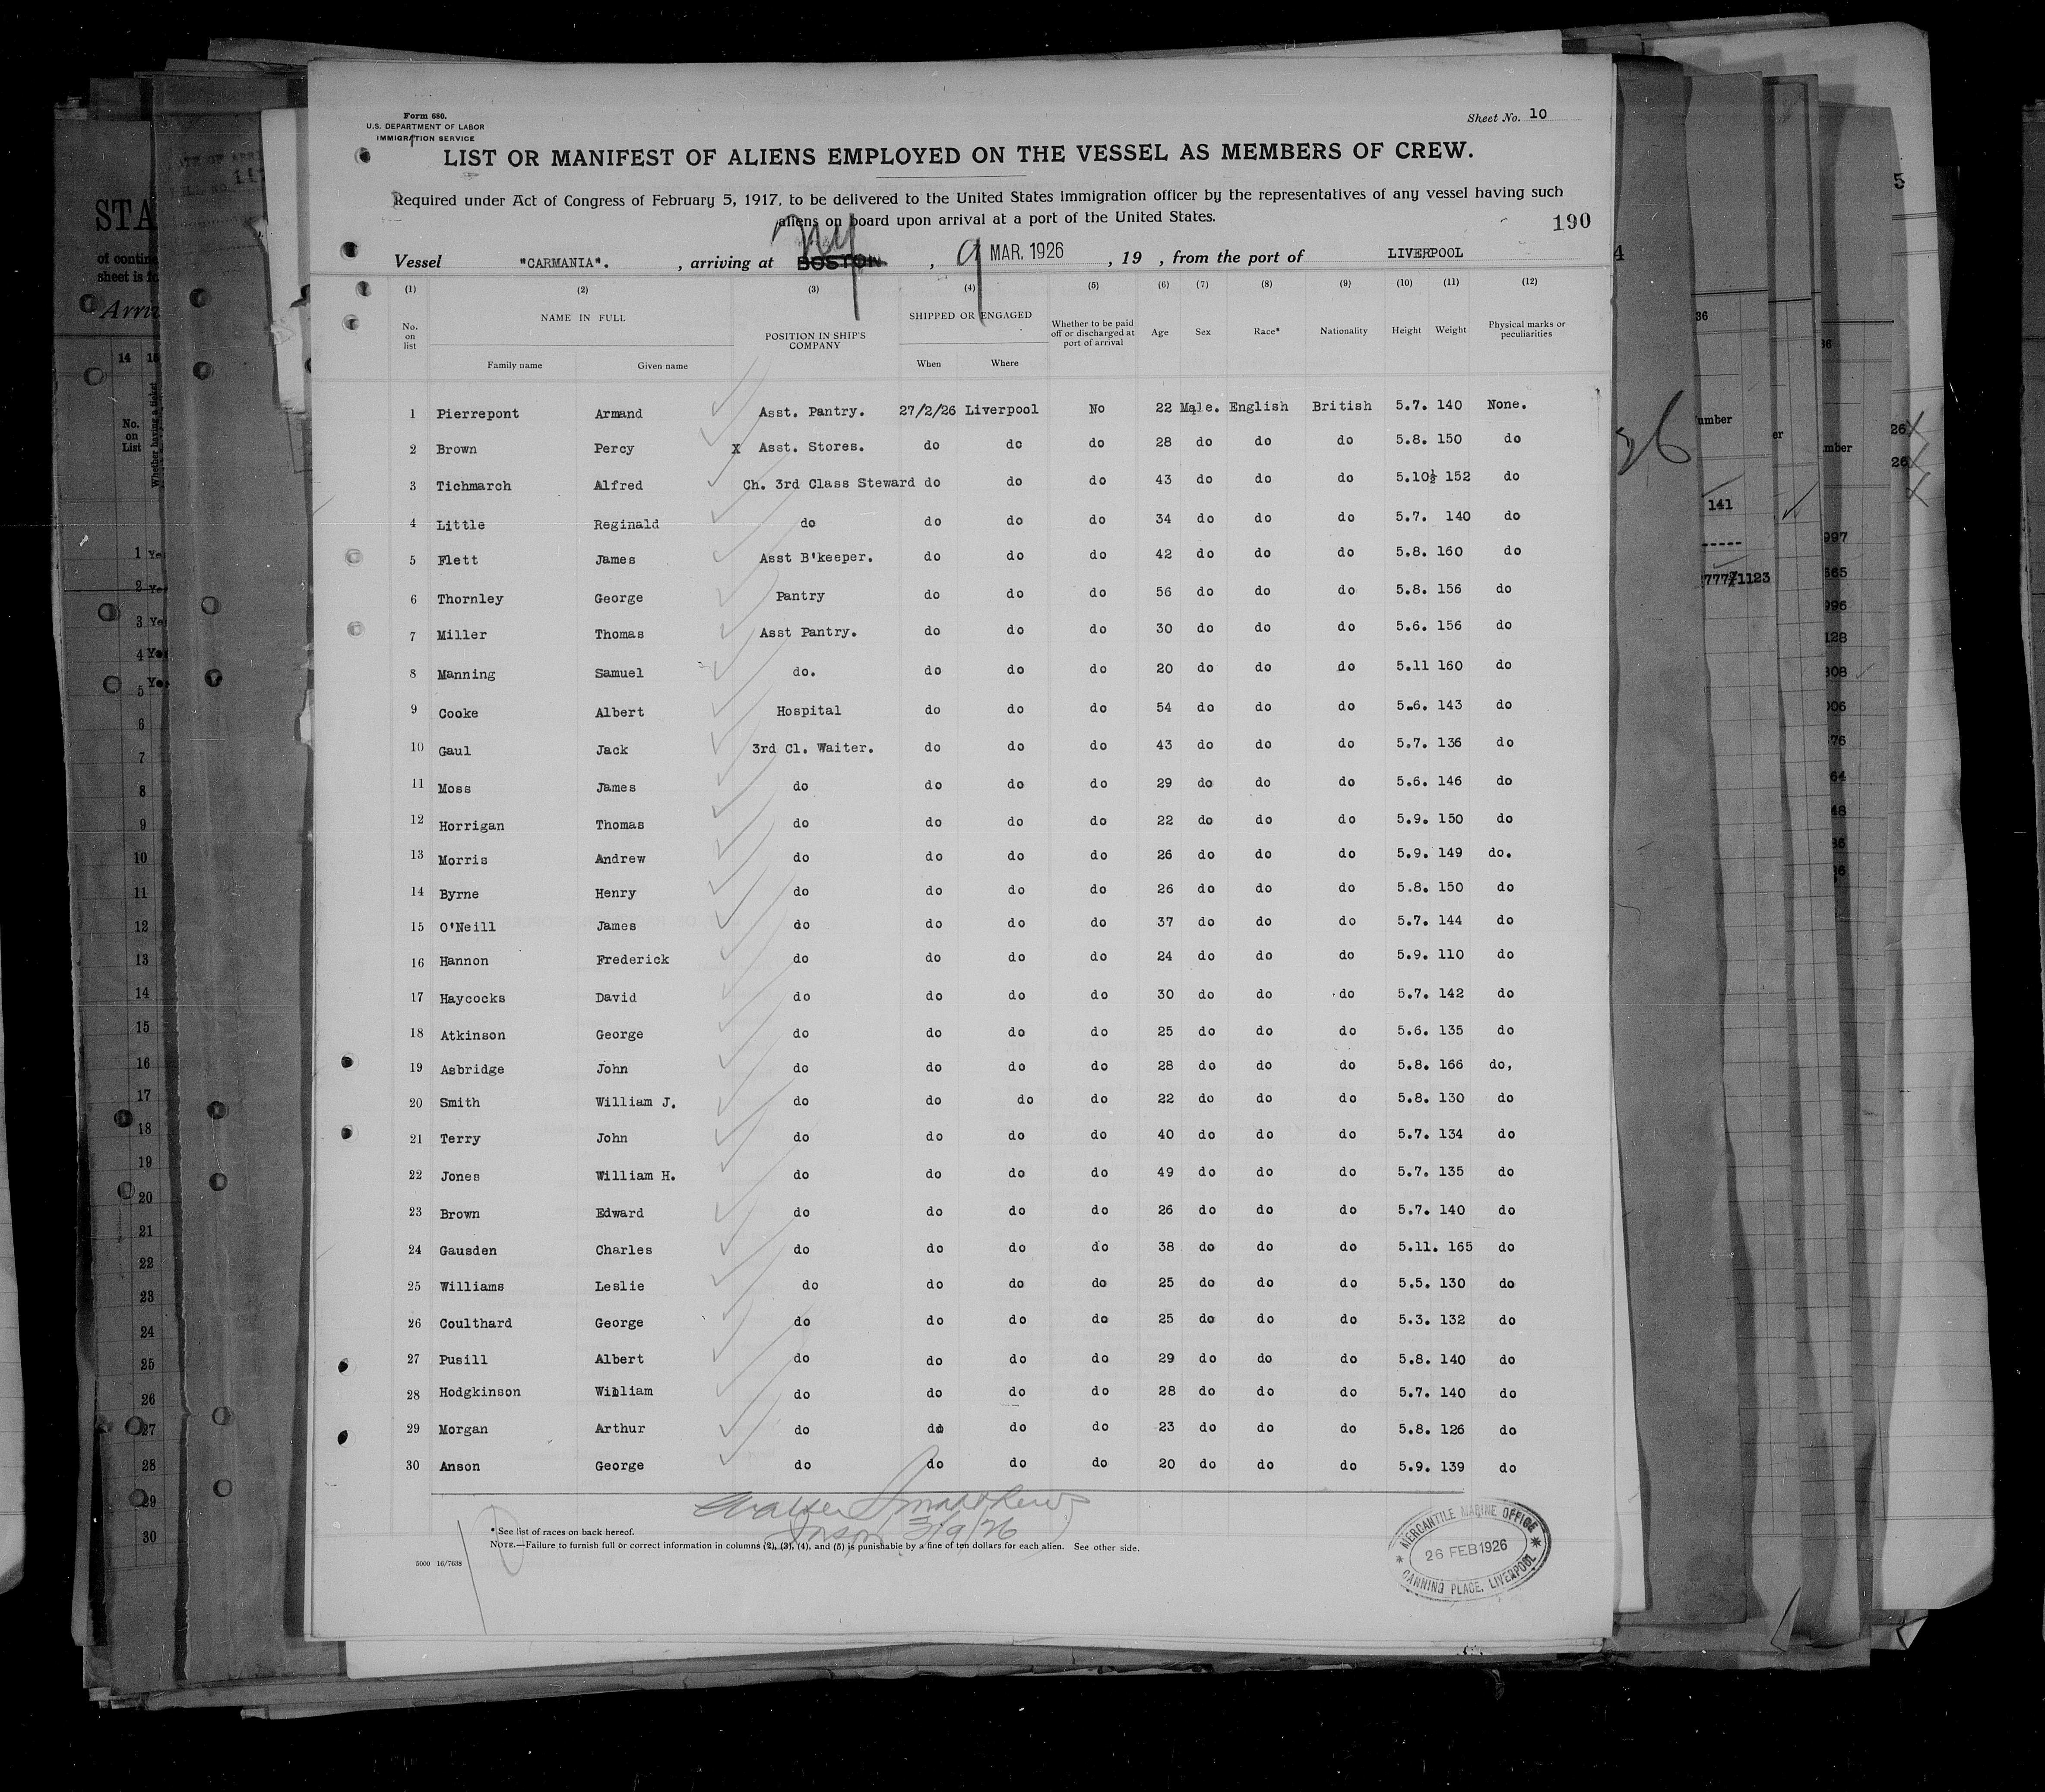 Form 680.
U.S. DEPARTMENT OF LABOR
IMMIGRATION SERVICE
Sheet No. 10
LIST OR MANIFEST OF ALIENS EMPLOYED ON THE VESSEL AS MEMBERS OF CREW.
Required under Act of Congress of February 5, 1917, to be delivered to the United States immigration officer by the representatives of any vessel having such
aliens on board upon arrival at a port of the United States.
190
Vessel "CARMANIA". , arriving at BOSTON NY , 9 MAR. 1926 , 19 , from the port of LIVERPOOL
(1) (2) (3) (4) (5) (6) (7) (8) (9) (10) (11) (12)
No. on list NAME IN FULL Family name Given name POSITION IN SHIP'S COMPANY SHIPPED OR ENGAGED When Where Whether to be paid off or discharged at port of arrival Age Sex Race* Nationality Height Weight Physical marks or peculiarities
1 Pierrepont Armand Asst. Pantry. 27/2/26 Liverpool No 22 Male. English British 5.7. 140 None.
2 Brown Percy X Asst. Stores. do do do 28 do do do 5.8. 150 do
3 Tichmarch Alfred Ch. 3rd Class Steward do do do 43 do do do 5.10½ 152 do
4 Little Reginald do do do do 34 do do do 5.7. 140 do
5 Flett James Asst B'keeper. do do do 42 do do do 5.8. 160 do
6 Thornley George Pantry do do do 56 do do do 5.8. 156 do
7 Miller Thomas Asst Pantry. do do do 30 do do do 5.6. 156 do
8 Manning Samuel do. do do do 20 do do do 5.11 160 do
9 Cooke Albert Hospital do do do 54 do do do 5.6. 143 do
10 Gaul Jack 3rd Cl. Waiter. do do do 43 do do do 5.7. 136 do
11 Moss James do do do do 29 do do do 5.6. 146 do
12 Horrigan Thomas do do do do 22 do do do 5.9. 150 do
13 Morris Andrew do do do do 26 do do do 5.9. 149 do.
14 Byrne Henry do do do do 26 do do do 5.8. 150 do
15 O'Neill James do do do do 37 do do do 5.7. 144 do
16 Hannon Frederick do do do do 24 do do do 5.9. 110 do
17 Haycocks David do do do do 30 do do do 5.7. 142 do
18 Atkinson George do do do do 25 do do do 5.6. 135 do
19 Asbridge John do do do do 28 do do do 5.8. 166 do,
20 Smith William J. do do do do 22 do do do 5.8. 130 do
21 Terry John do do do do 40 do do do 5.7. 134 do
22 Jones William H. do do do do 49 do do do 5.7. 135 do
23 Brown Edward do do do do 26 do do do 5.7. 140 do
24 Gausden Charles do do do do 38 do do do 5.11. 165 do
25 Williams Leslie do do do do 25 do do do 5.5. 130 do
26 Coulthard George do do do do 25 do do do 5.3. 132 do
27 Pusill Albert do do do do 29 do do do 5.8. 140 do
28 Hodgkinson William do do do do 28 do do do 5.7. 140 do
29 Morgan Arthur do do do do 23 do do do 5.8. 126 do
30 Anson George do do do do 20 do do do 5.9. 139 do
3/9/26
* See list of races on back hereof.
NOTE.—Failure to furnish full or correct information in columns (2), (3), (4), and (5) is punishable by a fine of ten dollars for each alien. See other side.
5000 16/7638
MERCANTILE MARINE OFFICE
26 FEB 1926
CANNING PLACE, LIVERPOOL